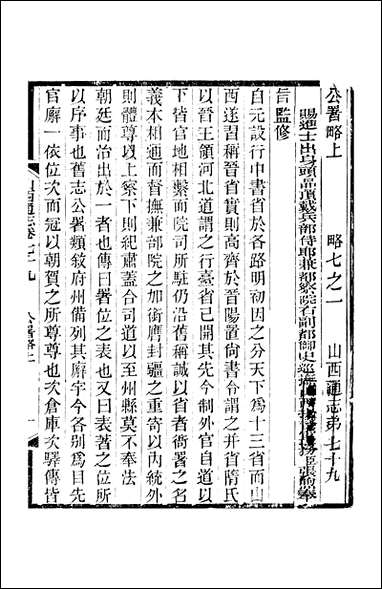 公署略上 略七之一 山西通志第七十九
賜進士出身頭品頂戴兵部侍郎兼都察院右副都御史巡撫山西
張煦奉
旨監修
自元設行中書省於各路明初因之分天下爲十三省而山
西遂習稱晉省實則高齊於晉陽置尙書台謂之并省隋氏
以晉王領河北道謂之行臺省已開其先今制外官自道以
下皆官地相繫而院司所駐仍沿舊稱誠以省者衙署之名
義本相通而督撫兼部院之加銜膺封疆之重寄以內統外
則體尊以上察下則紀肅蓋合司道以至州縣莫不奉法
朝廷而治出於一者也傳曰署位之表也又曰表著之位所
以序事也舊志公署類敘府州備列其廨宇今各別爲目先
官廨一依位次而冠以朝賀之所尊尊也倉庫次驛傳皆
公署略上 一